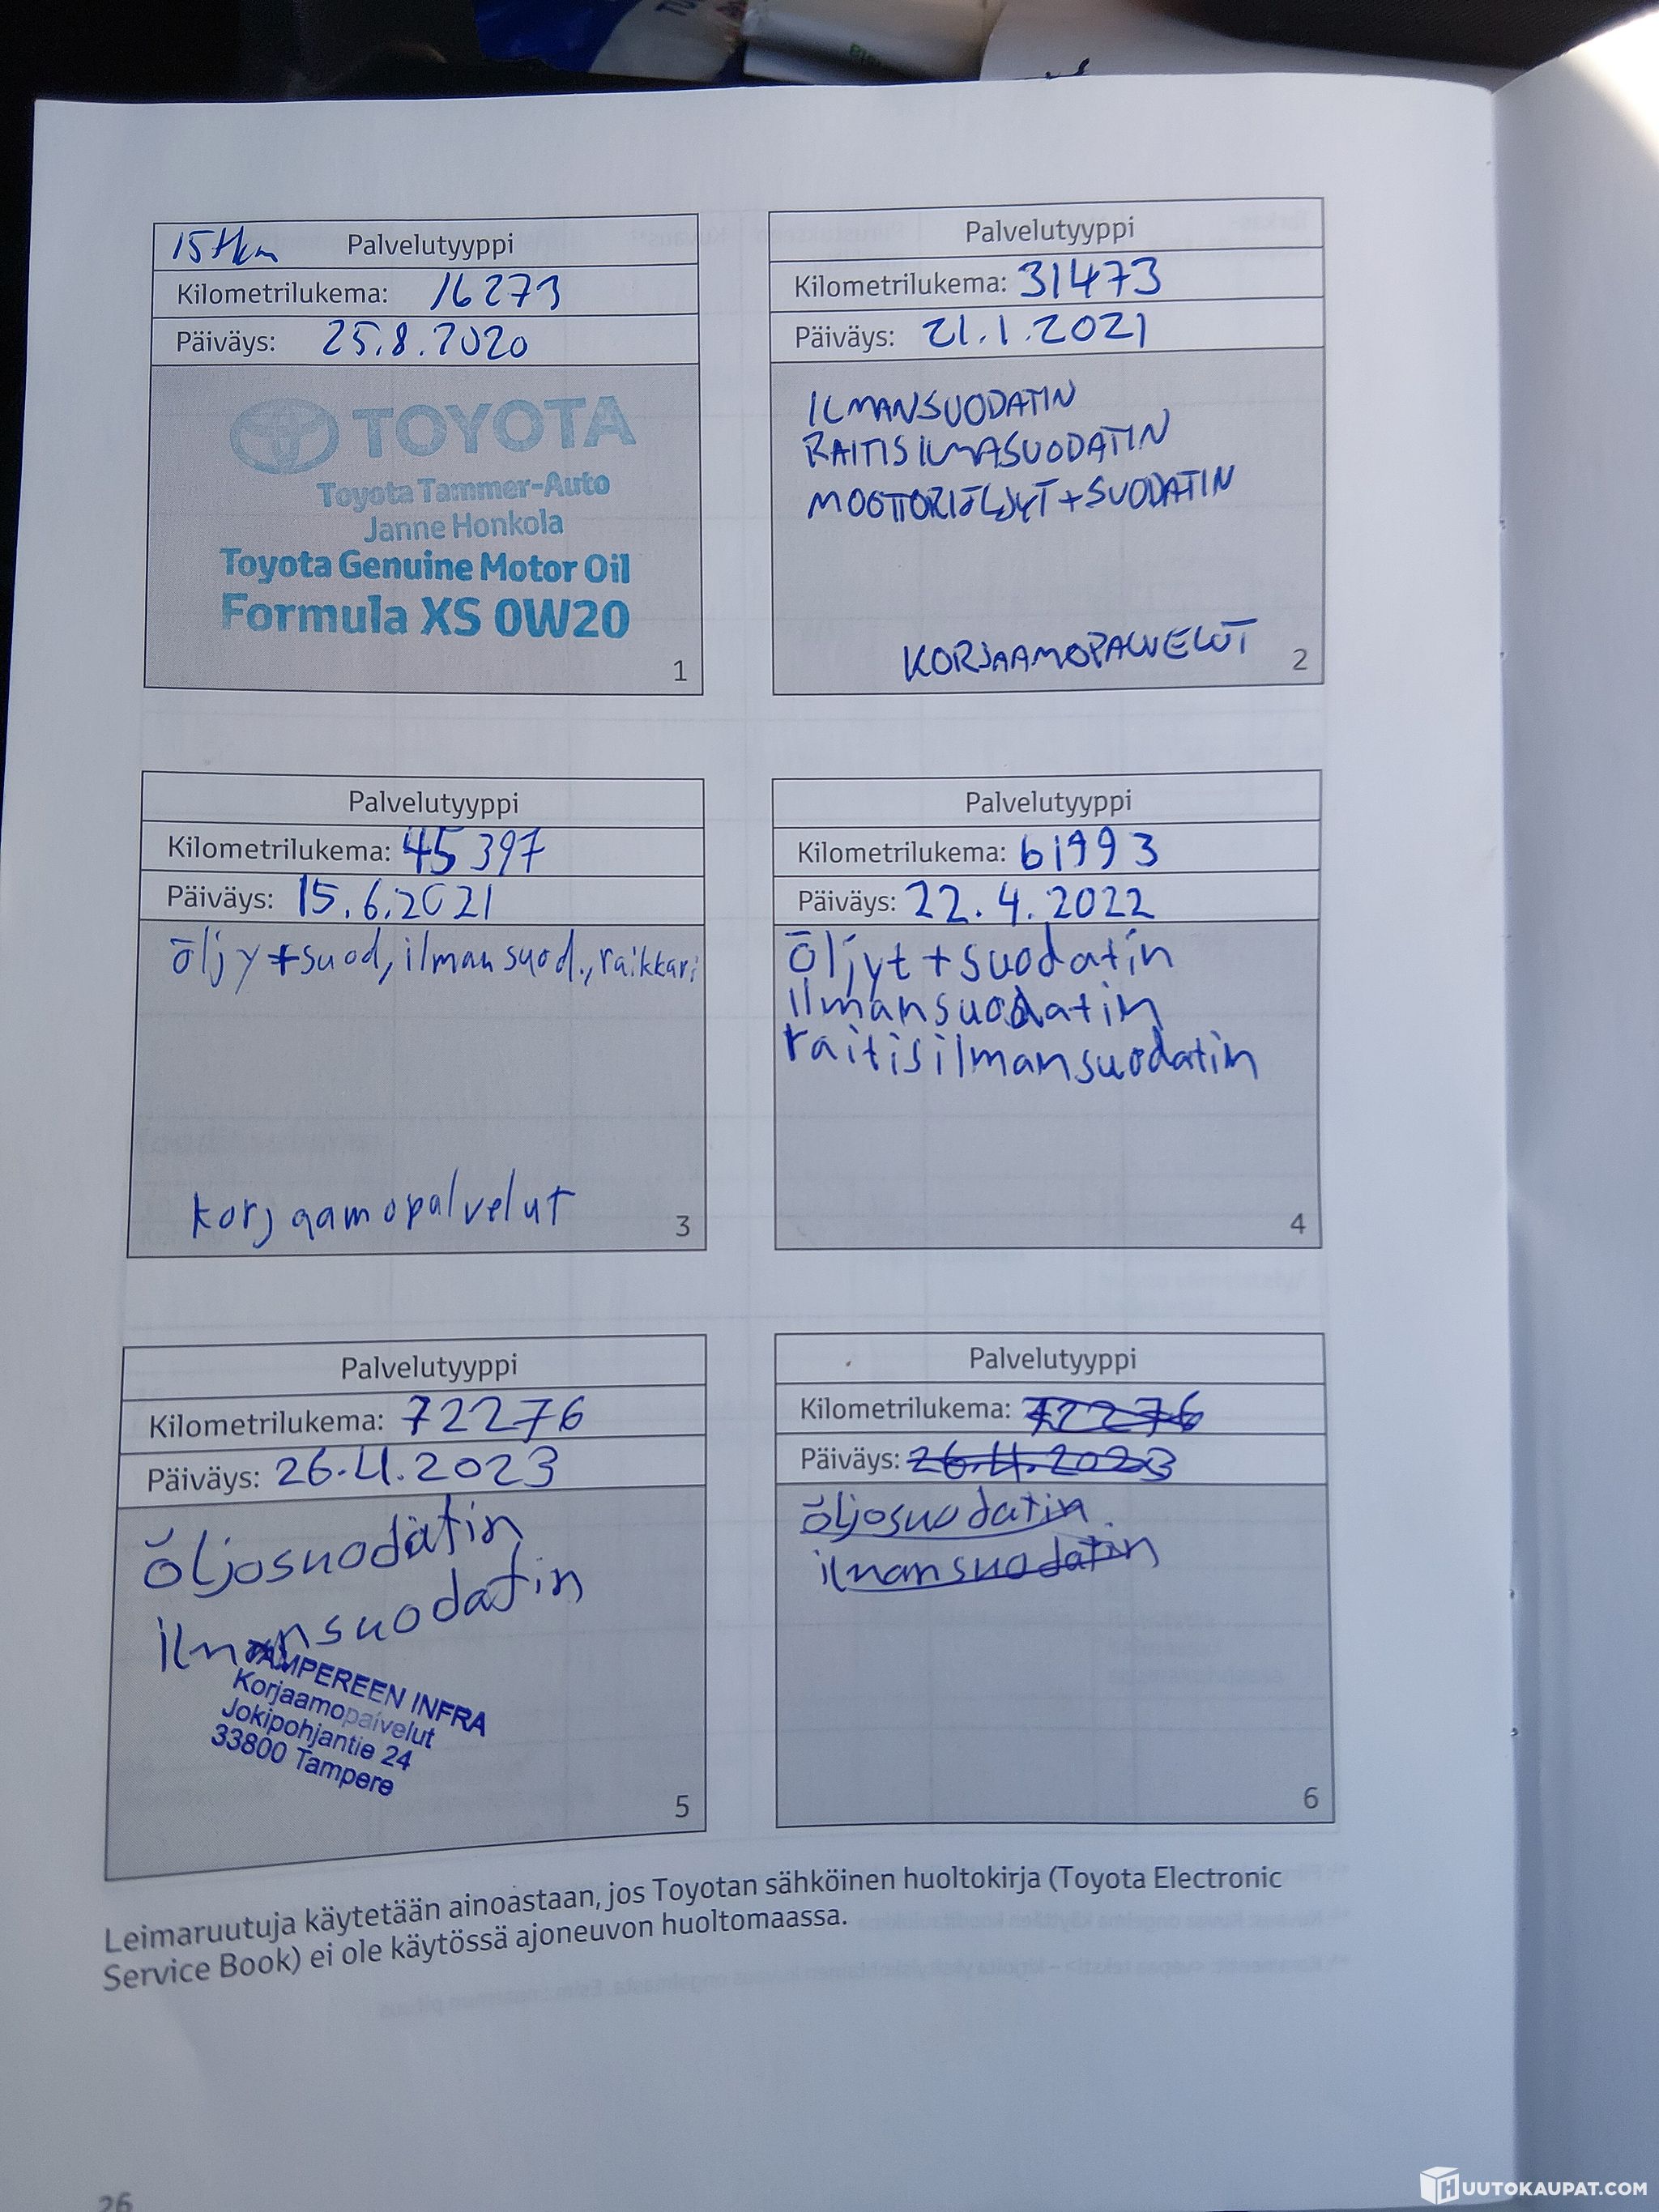 15 tkm Palvelutyyppi
Kilometrilukema: 16273
Päiväys: 25.8.2020
TOYOTA
Toyota Tammer-Auto
Janne Honkola
Toyota Genuine Motor Oil
Formula XS 0W20
1
Palvelutyyppi
Kilometrilukema: 31473
Päiväys: 21.1.2021
ILMANSUODATIN
RAITISILMASUODATIN
MOOTTORIÖLJYT+SUODATIN
KORJAAMOPALVELUT
2
Palvelutyyppi
Kilometrilukema: 45397
Päiväys: 15.6.2021
öljy+suod, ilmansuod., raikkari
korjaamopalvelut
3
Palvelutyyppi
Kilometrilukema: 61993
Päiväys: 22.4.2022
öljyt+suodatin
ilmansuodatin
raitisilmansuodatin
4
Palvelutyyppi
Kilometrilukema: 72276
Päiväys: 26.4.2023
öljosuodatin
ilmansuodatin
TAMPEREEN INFRA
Korjaamopalvelut
Jokipohjantie 24
33800 Tampere
5
Palvelutyyppi
Kilometrilukema: 72276
Päiväys: 26.4.2023
öljosuodatin
ilmansuodatin
6
Leimaruutuja käytetään ainoastaan, jos Toyotan sähköinen huoltokirja (Toyota Electronic
Service Book) ei ole käytössä ajoneuvon huoltomaassa.
26
HUUTOKAUPAT.COM